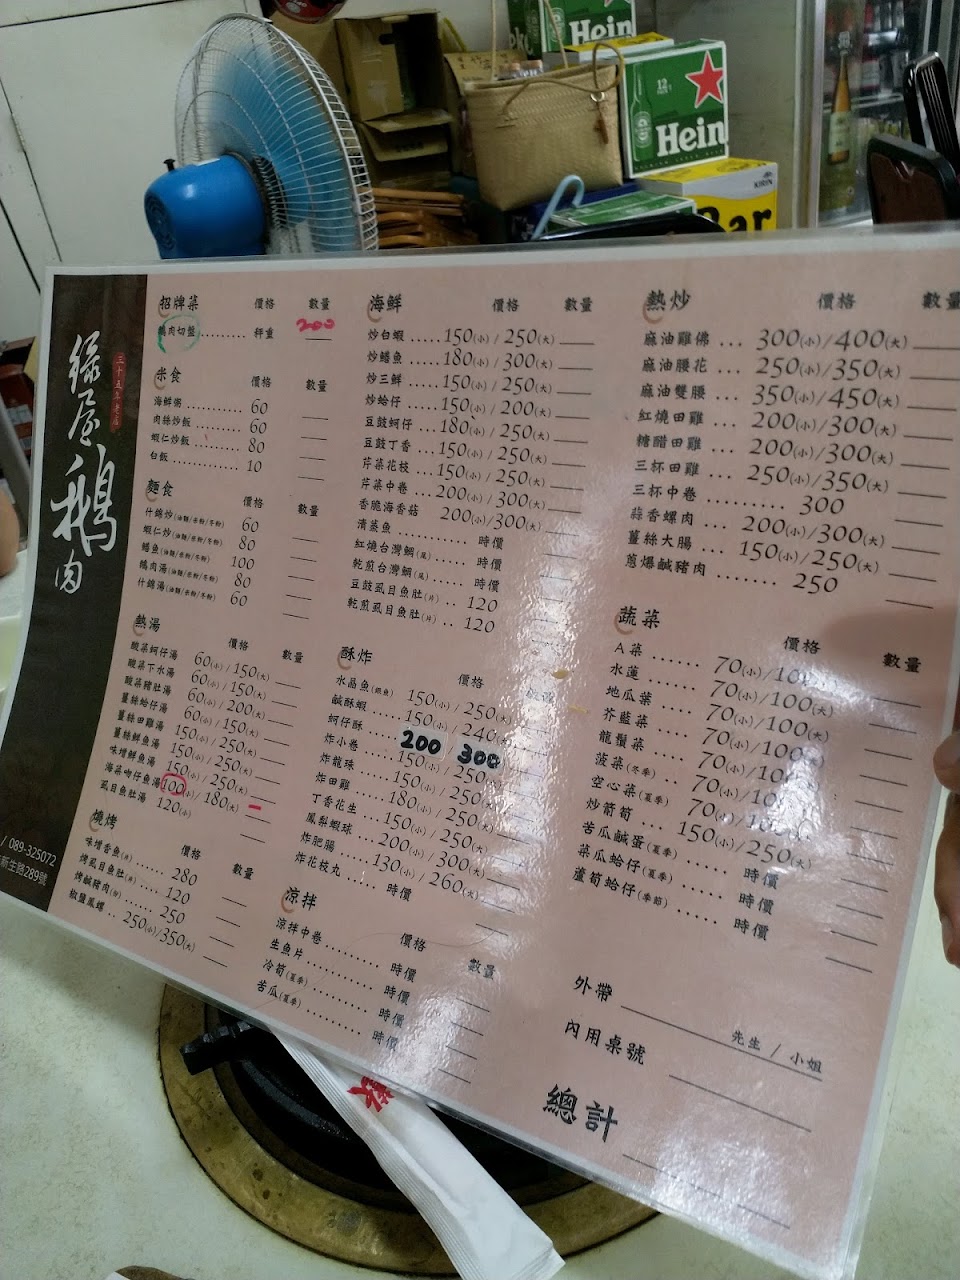 Hein
12
Hein
KIRIN
Bar
三十五年老店
綠屋鵝肉
/ 089-325072
新生路289號
招牌菜 價格 數量
鵝肉切盤.......... 秤重 200
米食 價格 數量
海鮮粥 ............ 60
肉絲炒飯 ........ 60
蝦仁炒飯 ........ 80
白飯 ............. 10
麵食 價格 數量
什錦炒(油麵/米粉/冬粉) 60
蝦仁炒(油麵/米粉/冬粉) 80
鱔魚(油麵/米粉/冬粉) 100
鵝肉湯(油麵/米粉/冬粉) 80
什錦湯(油麵/米粉/冬粉) 60
熱湯 價格 數量
酸菜蚵仔湯 60(小)/150(大)
酸菜下水湯 60(小)/150(大)
酸菜豬肚湯 60(小)/200(大)
薑絲蛤仔湯 60(小)/150(大)
薑絲田雞湯 150(小)/250(大)
薑絲鮮魚湯 150(小)/250(大)
味增鮮魚湯 150(小)/250(大)
海菜吻仔魚湯 100(小)/180(大)
虱目魚肚湯 120(小)
燒烤 價格 數量
味增香魚(2) ...... 280
烤虱目魚肚(片) .... 120
烤鹹豬肉(份) ...... 250
椒鹽鳳螺 .. 250(小)/350(大)
海鮮 價格 數量
炒白蝦 ..... 150(小) / 250(大)
炒鱔魚 ..... 180(小) / 300(大)
炒三鮮 ..... 150(小) / 250(大)
炒蛤仔 ..... 150(小) / 200(大)
豆鼓蚵仔 ... 180(小) / 250(大)
豆鼓丁香 ... 150(小) / 250(大)
芹菜花枝 ... 150(小) / 250(大)
芹菜中卷 ... 200(小) / 300(大)
香脆海香菇 200(小)/300(大)
清蒸魚 ............... 時價
紅燒台灣鯛(尾) ...... 時價
乾煎台灣鯛(尾) ...... 時價
豆鼓虱目魚肚(片) .. 120
乾煎虱目魚肚(片) .. 120
酥炸 價格 數量
水晶魚(銀魚) 150(小)/ 250(大)
鹹酥蝦 ....... 150(小)/ 240(大)
蚵仔酥 ..... 200 300
炸小卷 ..... 150(小)/ 250(大)
炸龍珠 ..... 150(小)/ 250(大)
炸田雞 ..... 180(小)/ 250(大)
丁香花生 ... 150(小)/ 250(大)
鳳梨蝦球 ... 200(小)/ 300(大)
炸肥腸 ..... 130(小)/ 260(大)
炸花枝丸 ....... 時價
涼拌 價格 數量
涼拌中卷 .......... 時價
生魚片 ............ 時價
冷筍(夏季) .......... 時價
苦瓜(夏季) .......... 時價
熱炒 價格 數量
麻油雞佛 ... 300(小)/400(大)
麻油腰花 ... 250(小)/350(大)
麻油雙腰 ... 350(小)/450(大)
紅燒田雞 ... 200(小)/300(大)
糖醋田雞 ... 200(小)/300(大)
三杯田雞 ... 250(小)/350(大)
三杯中卷 .......... 300
蒜香螺肉 ... 200(小)/300(大)
薑絲大腸 ... 150(小)/250(大)
蔥爆鹹豬肉 ....... 250
蔬菜 價格 數量
A菜 ...... 70(小)/100(大)
水蓮 ...... 70(小)/100(大)
地瓜葉 ..... 70(小)/100(大)
芥藍菜 ..... 70(小)/100(大)
龍鬚菜 ..... 70(小)/100(大)
菠菜(冬季) ... 70(小)/100(大)
空心菜(夏季) .. 70(小)/100(大)
炒箭筍 ... 150(小)/250(大)
苦瓜鹹蛋(夏季) ...... 時價
菜瓜蛤仔(夏季) ...... 時價
蘆筍蛤仔(季節) ...... 時價
外帶
先生 / 小姐
內用桌號
總計